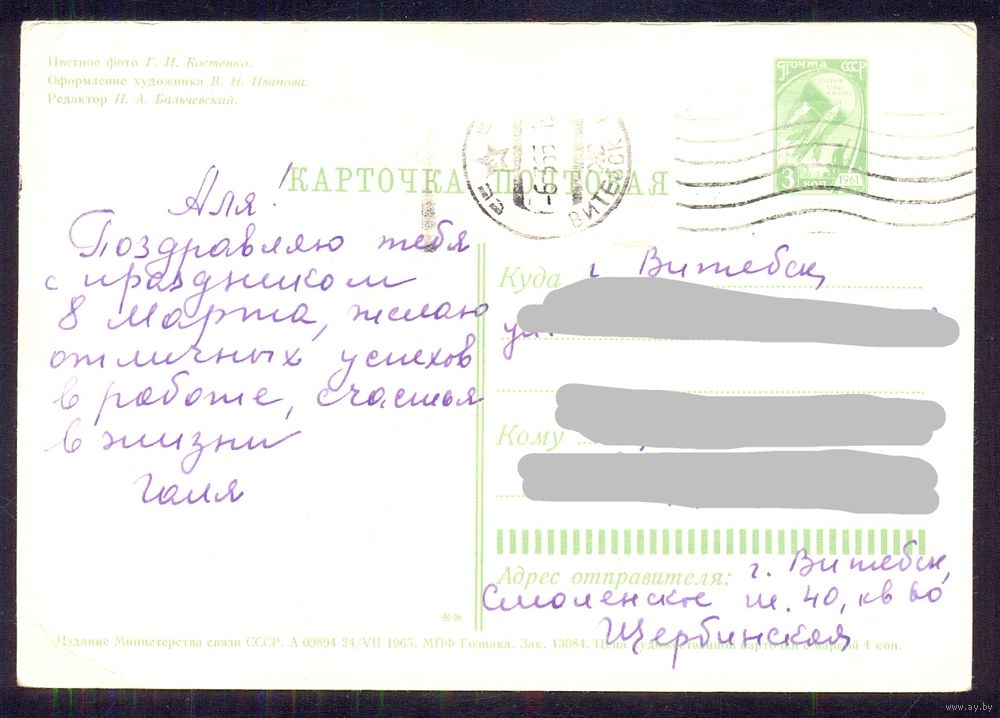 Цветное фото Г. И. Костенко.
Оформление художника В. Н. Иванова.
Редактор Н. А. Бальчевский.
ПОЧТА СССР
3 коп
1961
КАРТОЧКА ПОЧТОВАЯ
ВИТЕБСК
Аля!
Поздравляю тебя
с праздником
8 марта, желаю
отличных успехов
в работе, счастья
в жизни
Галя
Куда г Витебск,
ул.
Кому
Адрес отправителя: г. Витебск,
Смоленское ш. 40, кв 60
Щербинская
**
Издание Министерства связи СССР. А 09894 24/VII 1965. МПФ Гознака. Зак. 13084. Цена художественной карточки с маркой 4 коп.
www.ay.by